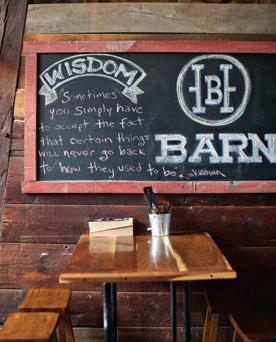 WISDOM
Sometimes
you simply have
to accept the fact
that certain things
will never go back
to how they used to be.
- unknown
HBH
BARN